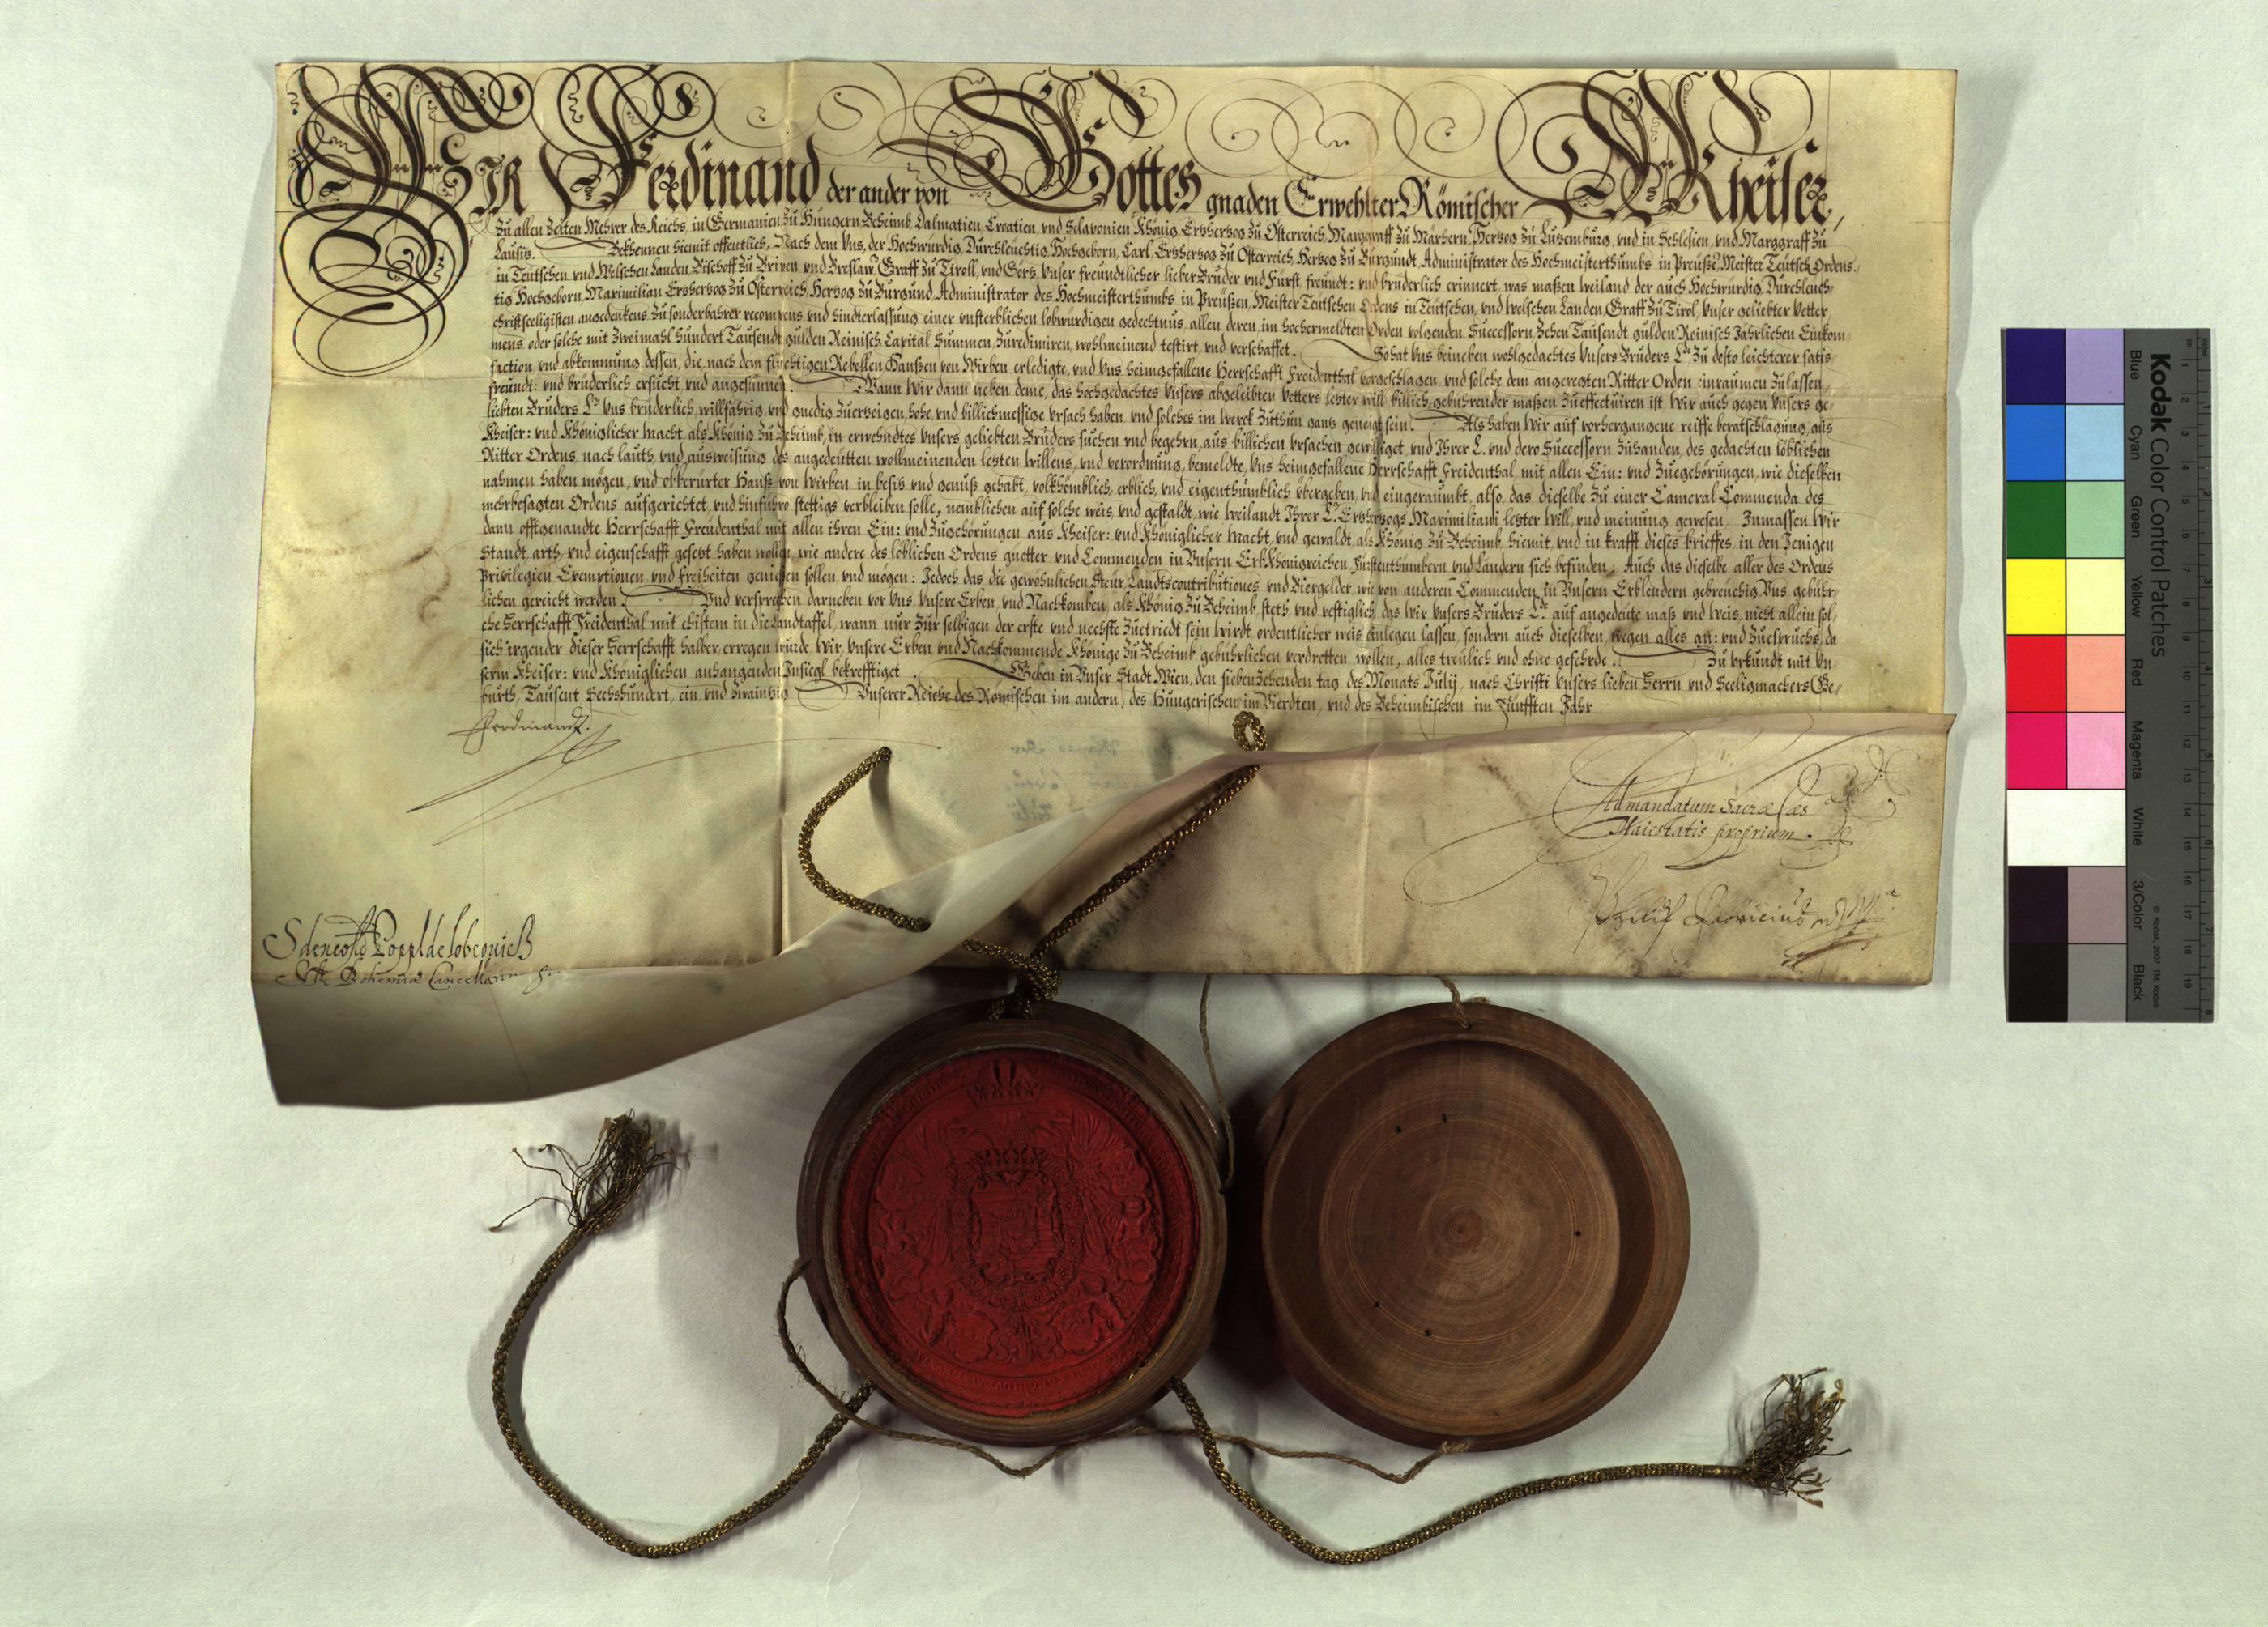 WIR Ferdinand der ander von Gottes gnaden Erwehlter Römischer Kheiser,
Zu allen Zeiten Mehrer des Reichs, in Germanien zu Hungern Beheimb Dalmatien Croatien, vnd Sclavonien Khönig, Ertzhertzog zu Österreich, Marggraff zu Märhern, Hertzog zu Lutzemburg, vnd in Schlesien, vnd Marggraff zu
Lausitz. Bekhennen hiemit offentlich, Nach dem Vns, der Hochwürdig, Durchleuchtig, Hochgeborn, Carl, Ertzhertzog zu Österreich, Hertzog zu Burgundt, Administrator des Hochmeisterthumbs in Preüßen, Meister Teutsch Ordens
in Teutschen vnd Welschen Landen, Bischoff zu Brixen vnd Breslaw, Graff zu Tiroll, vnd Görtz, Vnser freundtlicher lieber Bruder vnd Fürst, freundt: vnd brüderlich erinnert, was maßen weiland der auch Hochwürdig, Durchleuch-
tig Hochgeborn, Maximilian Ertzhertzog zu Österreich, Hertzog zu Burgund, Administrator des Hochmeisterthumbs in Preüßen, Meister Teutschen Ordens in Teutschen, vnd Welschen Landen, Graff zu Tirol, Vnser geliebter Vetter,
christseeligisten angedenkens, zu sonderbahrer recompens, vnd hindterlassung einer vnsterblichen lobwürdigen gedechtnus, allen deren, im hochermeldten Orden volgenden Successorn, Zehen Tausendt gulden Reinisch Jährlichen Einkom-
mens, oder solche mit Zweimahl hundert Tausendt gulden Reinisch, Capital Summen, zu redimiren, wohlmeinend testirt, vnd verschaffet. So hat Vns beineben wohlgedachtes Vnsers Bruders Lde zu desto leichterer satis-
faction, vnd abkommung dessen, die, nach dem flüchtigen Rebellen Hanßen von Wirben erledigte, vnd Vns heimgefallene Herrschafft Freidenthal vorgeschlagen, vnd solche dem angeregten Ritter Orden einraumen zu lassen,
freundt: vnd brüderlich ersücht, vnd angesunnen. Wann Wir dann neben deme, das hochgedachtes Vnsers abgeleibten Vetters letzter will, billich, gebührender maßen zu effectuiren ist, Wir auch gegen Vnsers ge-
liebten Bruders Ld. Vns brüderlich, willfährig, vnd gnedig zuerzeigen, hohe, vnd billichmessige vrsach haben, vnd solches im werck zuthun gantz geneigt sein. Als haben Wir auf vorhergangene reiffe beratschlagung, aus
Kheiser: vnd Khöniglicher macht, als Khönig zu Beheimb, in erwehndtes Vnsers geliebten Brüders suchen vnd begehrn, aus billichen vrsachen gewilliget, vnd Ihrer L. vnd dero Successorn zuhanden, des gedachten löblichen
Ritter Ordens, nach lauth, vnd ausweisung des angedeütten wollmeinenden letzten willens, vnd verordnung, bemeldte, Vns heimgefallene Herrschafft Freidenthal, mit allen Ein: vnd Zuegehörungen, wie dieselben
nahmen haben mögen, vnd obberürter Hanß von Wirben in besitz vnd genuß gehabt, volkhömblich, erblich, vnd eigenthumblich vbergeben, vnd eingeraumbt, also, das dieselbe zu einer Cameral Commenda des
mehrbesagten Ordens aufgerichtet, vnd hinführo stettigs verbleiben solle, nemblichen auf solche weis, vnd gestaldt, wie weilandt Ihrer Ld. Ertzhertzogs Maximiliani letzter will, vnd meinung gewesen. Inmassen Wir
dann offtgenandte Herrschafft Freüdenthal mit allen ihren Ein: vnd Zugehörungen aus Kheiser: vnd Khöniglicher macht, vnd gewaldt, als Khönig zu Beheimb, hiemit, vnd in krafft dieses brieffes, in den Jenigen
Standt, arth, vnd eigenschafft gesetzt haben wollen, wie andere des löblichen Ordens guetter vnd Commenden in Vnsern Erb Khönigreichen Fürstenthümbern vnd Ländern sich befinden; Auch das dieselbe aller des Ordens
Privilegien, Exemptionen, vnd freiheiten geniessen sollen, vnd mögen: Jedoch das die gewöhnlichen Steur Landtscontributiones vnd Biergelder, wie von anderen Commenden, in Vnsern Erblendern gebreuchig, Vns gebühr-
lichen gereicht werden. Vnd versprechen darneben vor Vns, Vnsere Erben, vnd Nachkomben, als Khönig zu Beheimb, steth, vnd vestiglich, das Wir Vnsers Bruders Lde. auf angedeüte maß, vnd weis, nicht allein sol-
che Herrschafft Freidenthal mit ehistem in die Landtaffel, wann nur zur selbigen der erste vnd nechste Zuetriedt sein wirdt, ordentlicher weis einlegen lassen, sondern auch dieselben, wegen alles an: vnd zuespruchs, da
sich irgender dieser Herrschafft halber, erregen wurde, Wir, Vnsere Erben vnd Nachkommende Khönige zu Beheimb gebührlichen verdretten wollen, alles treulich vnd ohne gefehrde. Zu Vrkundt mit Vn-
serm Kheiser: vnd Khöniglichen anhangenden Insiegl bekrefftiget. Geben in Vnser Stadt Wien, den siebenzehenden tag des Monats Julij, nach Christi Vnsers lieben Herrn vnd Seeligmachers Ge-
burth, Tausent Sechshundert, ein vnd zwaintzig. Vnserer Reiche des Römischen im andern, des Hungerischen im Vierdten, vnd des Beheimbischen im Fünfften Jahr
Ferdinandt.
Ad mandatum Sacrae Caes
Maiestatis proprium.
Sdenco Poppl de lobcguicz
Bohemiae Cancellarius
Kodak Color Control Patches
Blue Cyan Green Yellow Red Magenta White 3/Color Black
© Kodak, 2007 TM: Kodak